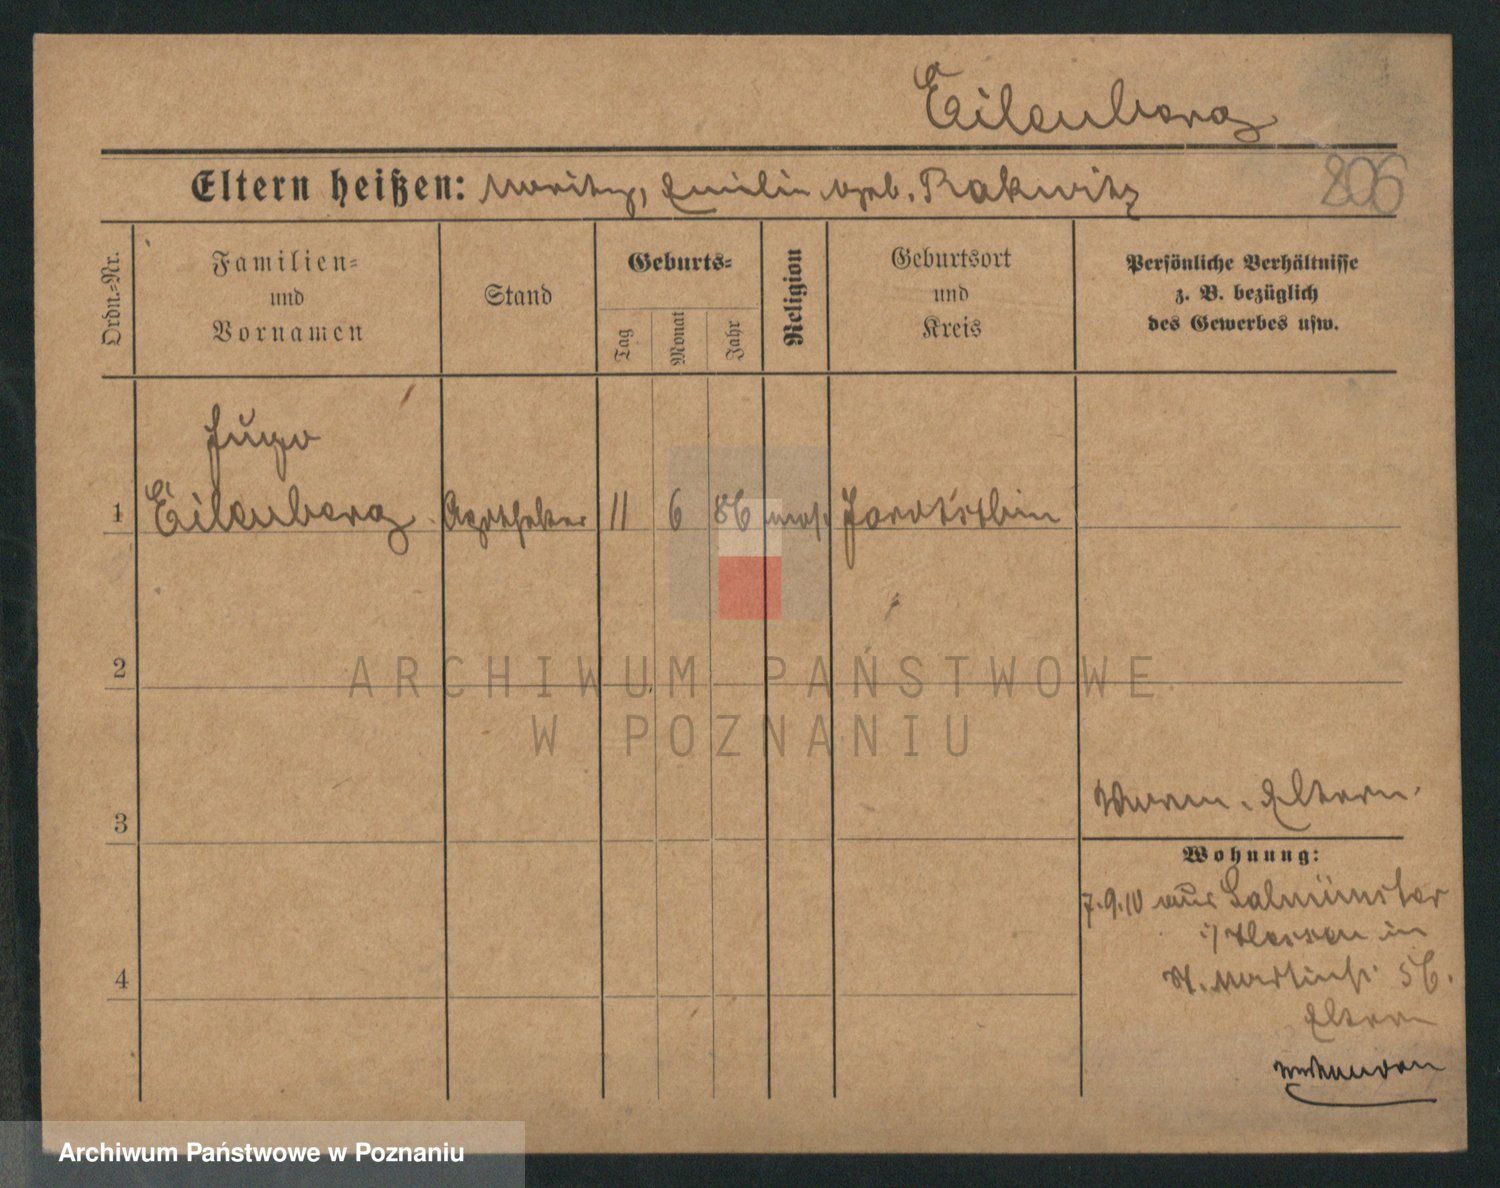 Eilenberg
Eltern heißen: Moritz, Emilie geb. Rakwitz
206
Ordn.-Nr.
Familien-
und
Vornamen
Stand
Geburts-
Tag
Monat
Jahr
Religion
Geburtsort
und
Kreis
Persönliche Verhältnisse
z. B. bezüglich
des Gewerbes usw.
Hugo
1 Eilenberg Apotheker 11 6 86 mos. Jarotschin
2
ARCHIWUM PAŃSTWOWE
W POZNANIU
3
Eltern.
Wohnung:
7.9.10 aus Salmünster
i/Hessen in
St. Martinstr. 56.
Eltern
4
Archiwum Państwowe w Poznaniu